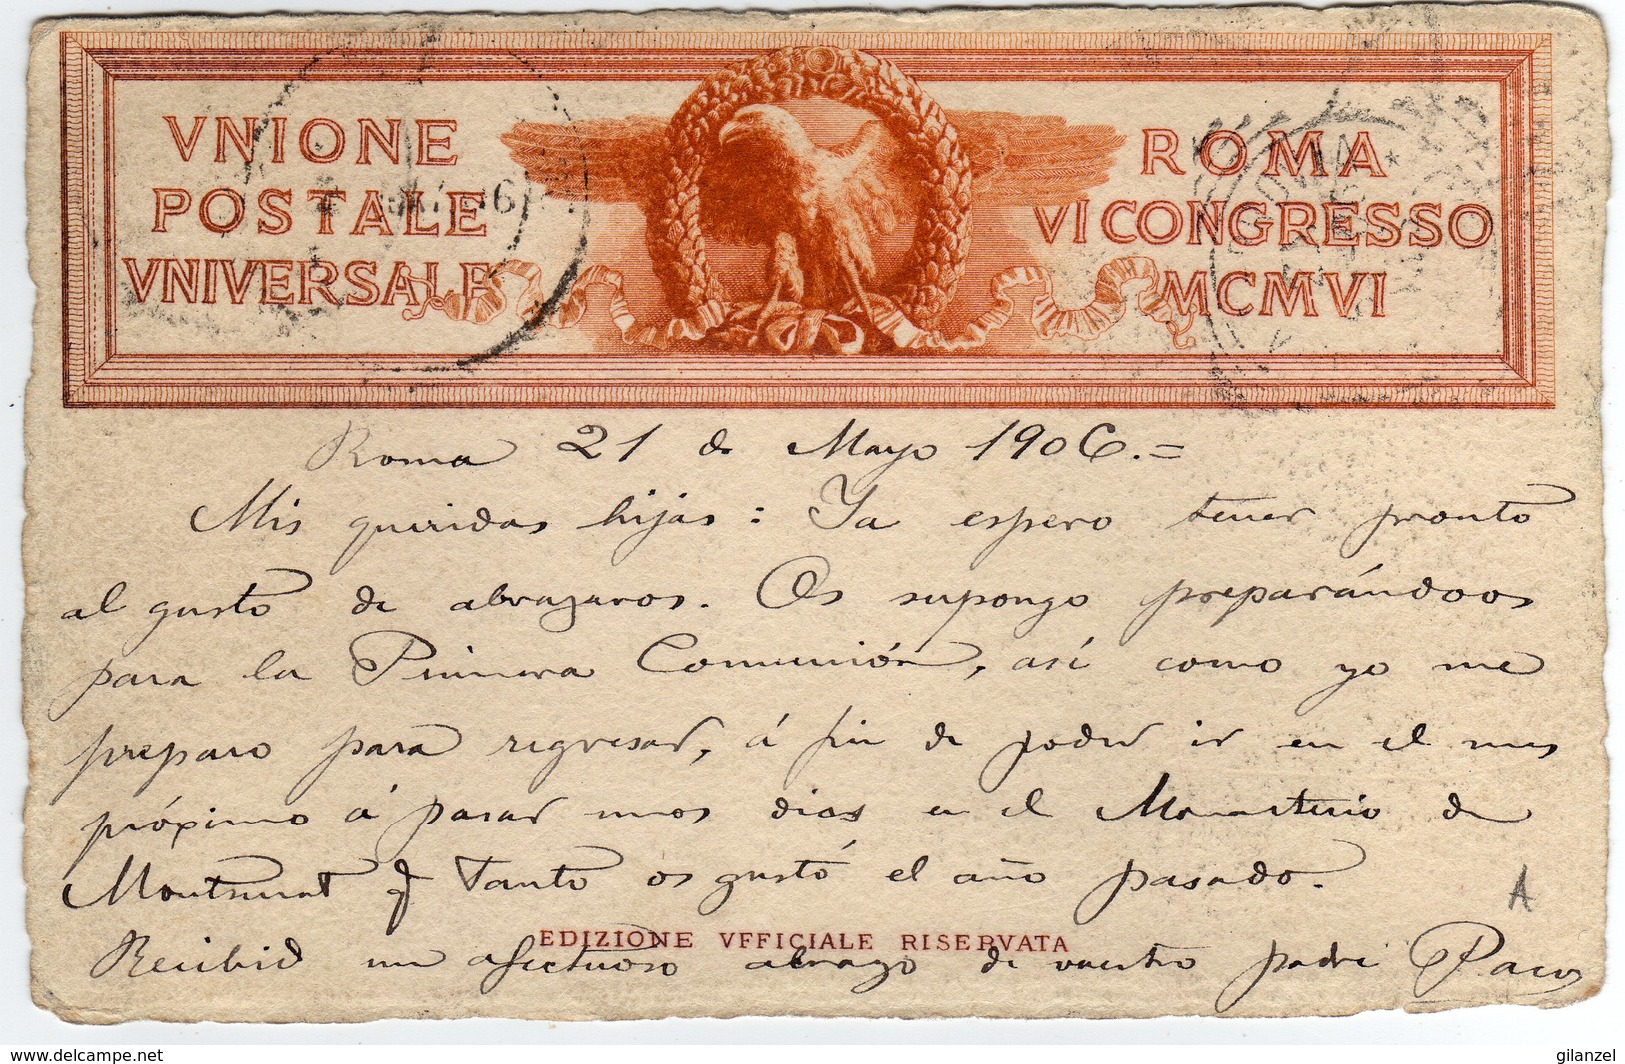 VNIONE
POSTALE
VNIVERSALE
ROMA
VI CONGRESSO
MCMVI
Roma 21 de Mayo 1906.=
Mis queridas hijas: Ya espero tener pronto
al gusto de abrazaros. Os supongo preparándoos
para la Primera Comunión, así como yo me
preparo para regresar, á fin de poder ir en el mes
próximo á pasar unos dias en el Monasterio de
Montserrat q Tanto os gustó el año pasado.
A
EDIZIONE VFFICIALE RISERVATA
Recibid un afectuoso abrazo de vuestro padre Paco
delcampe.net
gilanzel